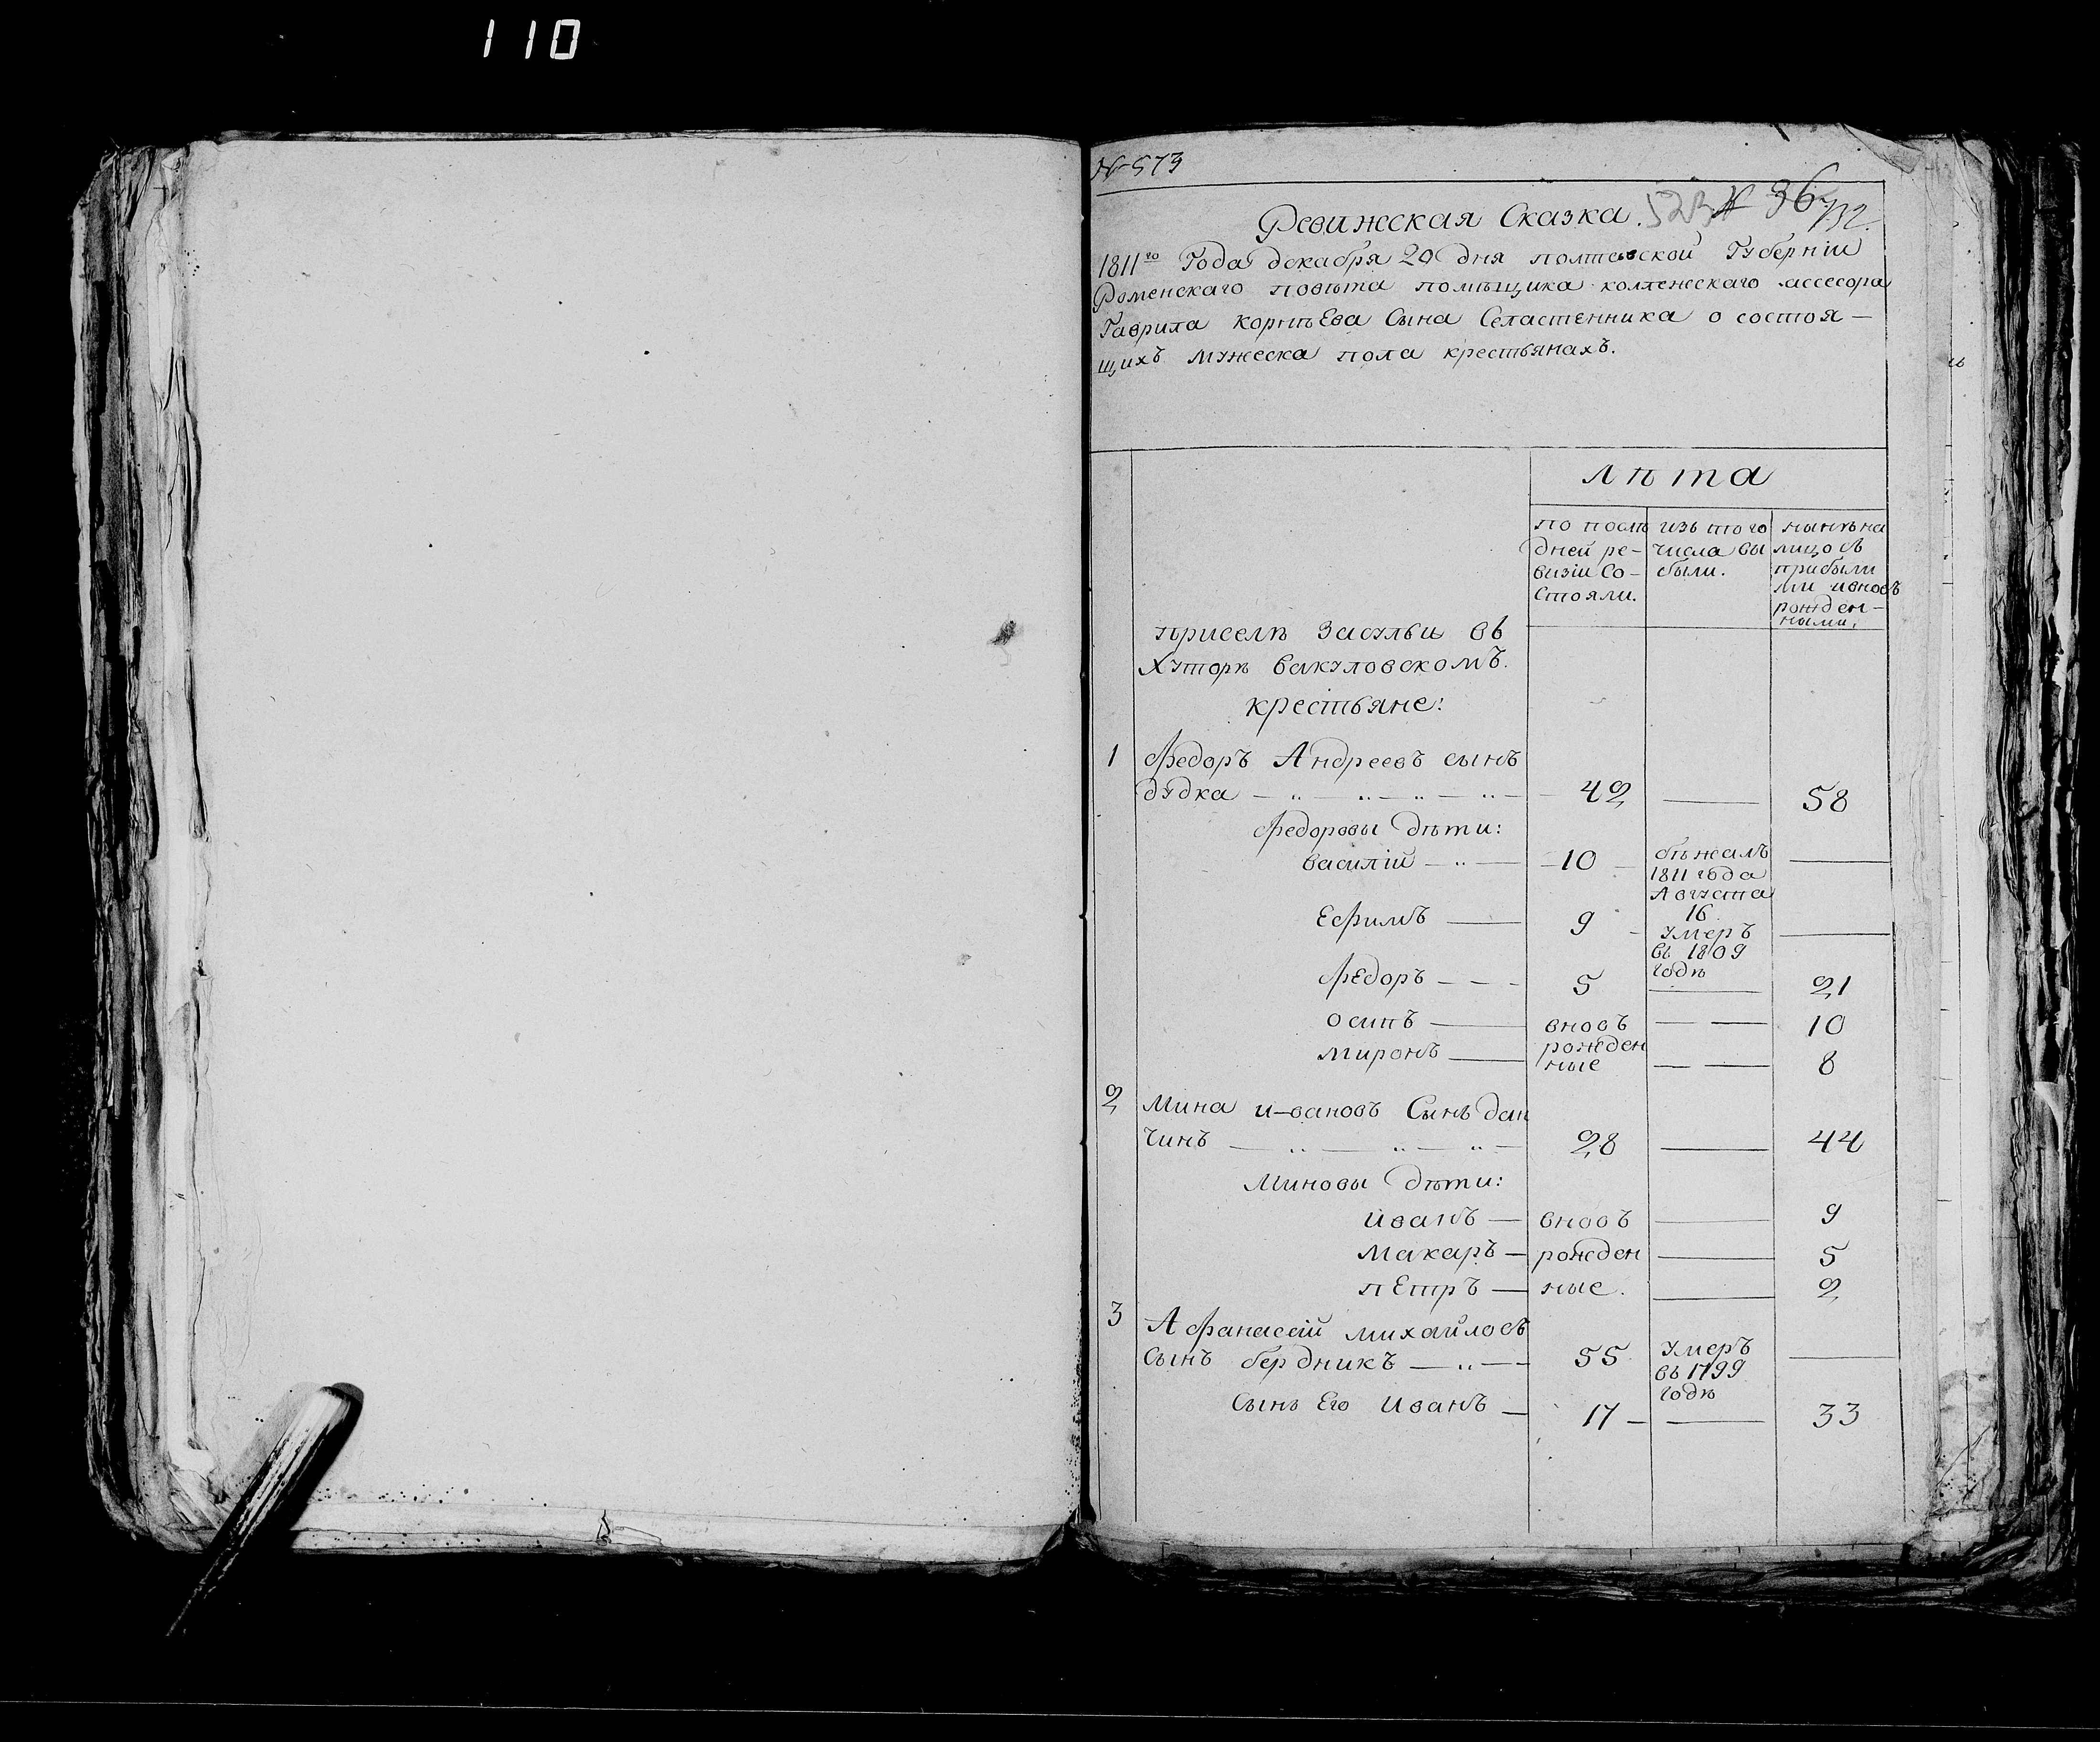 110
№ 573
Ревижская Сказка. 523 № 36 732.
1811го Года декабря 20 дня полтавской Губерніи
Роменскаго повѣта помѣщика коллежскаго ассесора
Гаврила корнѣева Сына Селастенника о состоя–
щихъ мужеска пола крестьянахъ.
лѣта
по послѣ дней ре– визіи Со– стояли.
изъ того числа вы были.
нынѣ на лицо съ прибыли ми и вновь рожден– ными.
при селѣ Засульи въ
Хуторѣ вакуловскомъ.
крестьяне:
1 Федоръ Андреевъ сынъ
дудка — 42 — 58
Федоровы дѣти:
василій — 10 — бѣжалъ 1811 года Августа 16 —
Ефимъ — 9 — умеръ въ 1809 годѣ —
Федоръ — 5 — 21
осипъ — вновь — 10
миронъ — рожден ные — 8
2 Мина и–вановъ Сынъ дан
чинъ — 28 — 44
Миновы дѣти:
иванъ — вновь — 9
макаръ — рожден — 5
пЕтръ — ные. — 2
3 Афанасій михайловъ
сынъ бердникъ — 55 умеръ въ 1799 годѣ —
Сынъ Его Иванъ — 17 — 33